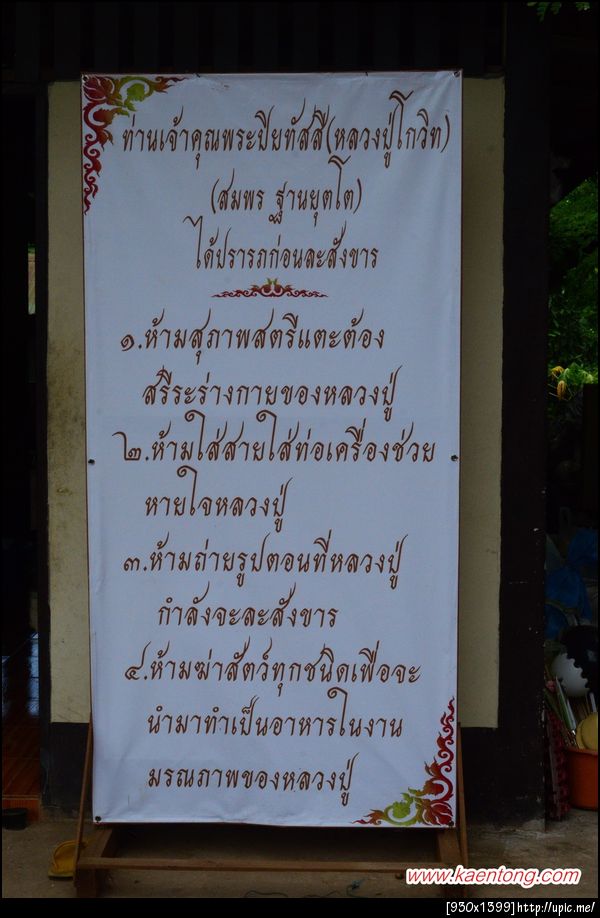 ท่านเจ้าคุณพระปิยทัสสี(หลวงปู่โกวิท)
(สมพร ฐานยุตโต)
ได้ปรารภก่อนละสังขาร
๑.ห้ามสุภาพสตรีแตะต้อง
สรีระร่างกายของหลวงปู่
๒.ห้ามใส่สายใส่ท่อเครื่องช่วย
หายใจหลวงปู่
๓.ห้ามถ่ายรูปตอนที่หลวงปู่
กำลังจะละสังขาร
๔.ห้ามฆ่าสัตว์ทุกชนิดเพื่อจะ
นำมาทำเป็นอาหารในงาน
มรณภาพของหลวงปู่
www.kaentong.com
[930x1399]http://upic.me/